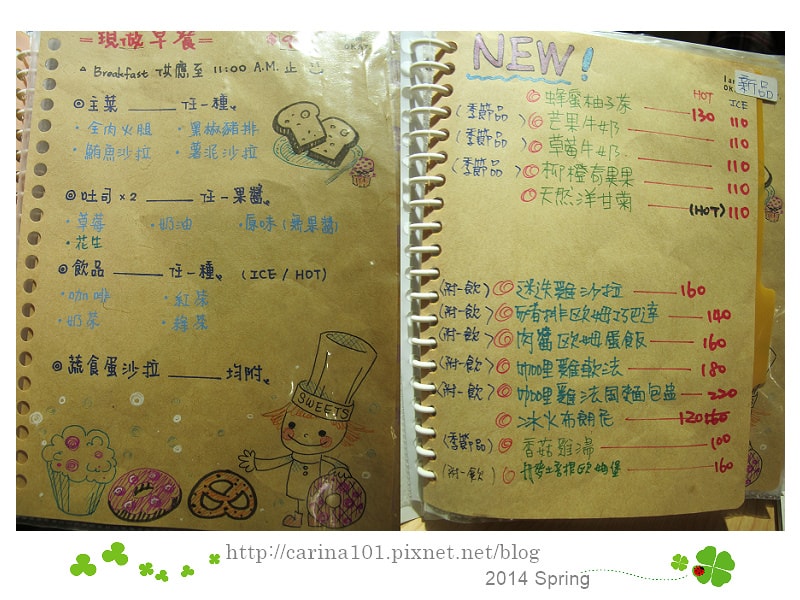 =現做早餐=
△ Breakfast 供應至 11:00 A.M. 止
◎主菜 ______ 任一種。
・全肉火腿 ・黑椒豬排
・鮪魚沙拉 ・薯泥沙拉
◎吐司×2 ______ 任一果醬。
・草莓 ・奶油 ・原味(無果醬)
・花生
◎飲品 ______ 任一種。 (ICE / HOT)
・咖啡 ・紅茶
・奶茶 ・綠茶
◎蔬食蛋沙拉 ______ 均附。
SWEETS
NEW!
新品
HOT ICE
◎蜂蜜柚子茶 130 110
(季節品) ◎芒果牛奶 110
(季節品) ◎草莓牛奶 110
(季節品) ◎柳橙奇異果 110
◎天然洋甘菊 (HOT) 110
(附一飲) ◎迷迭雞沙拉 160
(附一飲) ◎豬排歐姆巧巴達 140
(附一飲) ◎肉醬歐姆蛋飯 160
(附一飲) ◎咖哩雞軟法 180
(附一飲) ◎咖哩雞法國麵包盅 220
◎冰火布朗尼 120
(季節品) ◎香菇雞湯 100
(附一飲) 160
http://carina101.pixnet.net/blog
2014 Spring